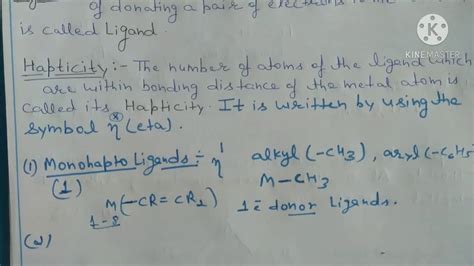 of donating a pair of electrons to
is called Ligand.
KINEMASTER
Hapticity :- The number of atoms of the ligand which
are within bonding distance of the metal atom is
called its Hapticity. It is written by using the
symbol η (eta).
(1) Monohapto Ligands :- η¹ alkyl (-CH3), aryl (-C6H5
(1) M(-CR=CR2) M-CH3
1-e 1ē donor Ligands.